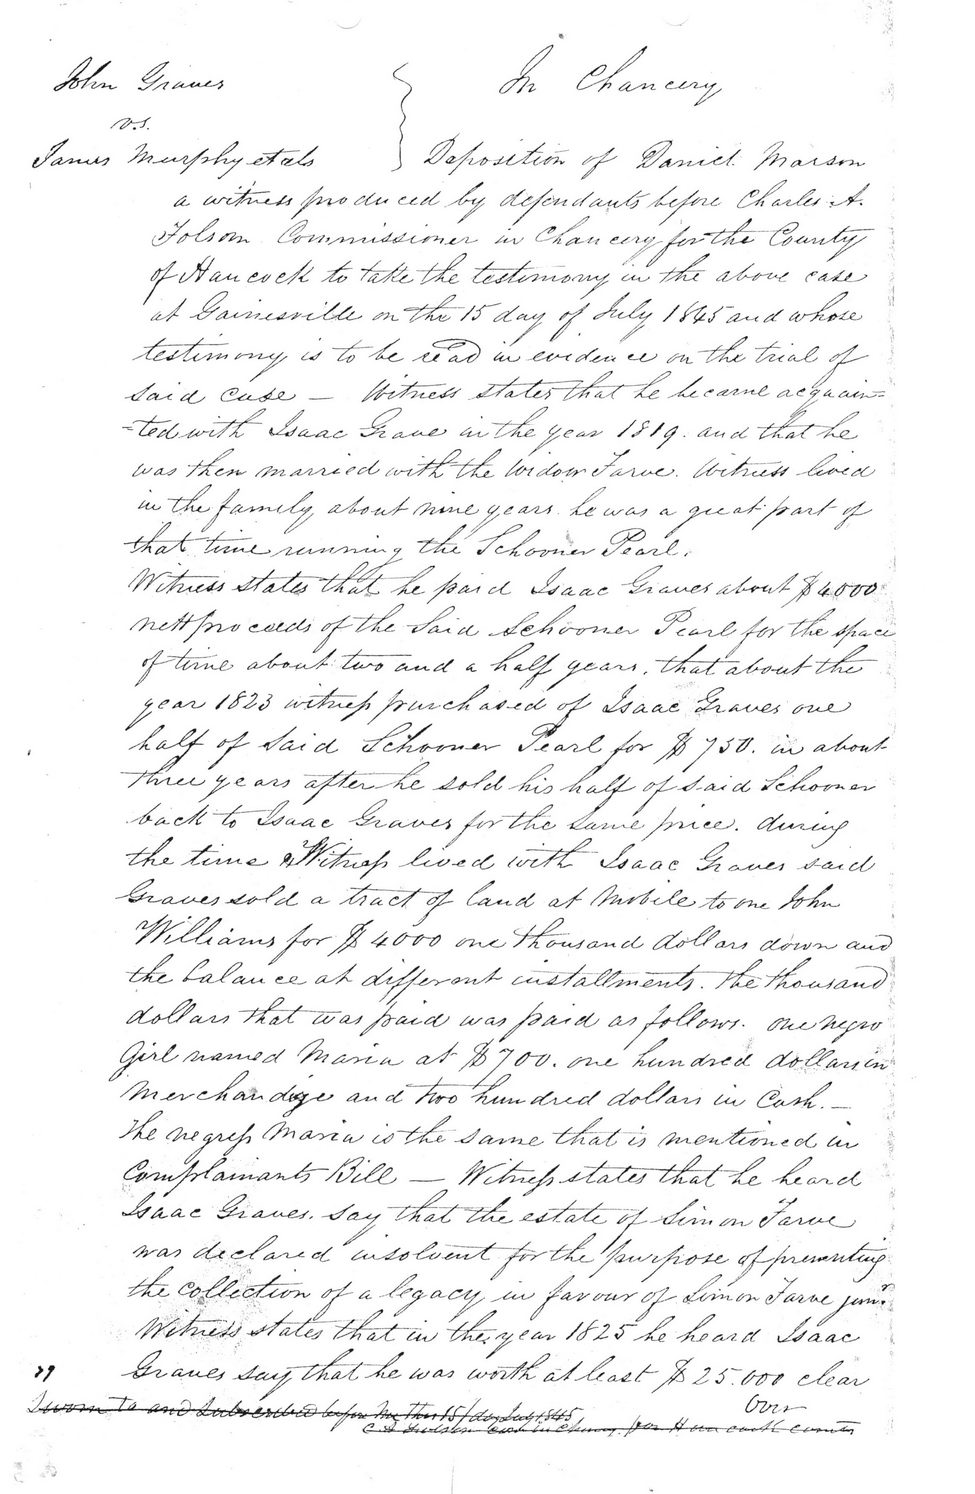 John Graves
In Chancery
vs.
James Murphy et als
Deposition of Daniel Marson
a witness produced by defendants before Charles A.
Folsom Commissioner in Chancery for the County
of Hancock to take the testimony in the above case
at Gainesville on the 15 day of July 1845 and whose
testimony is to be read in evidence on the trial of
said case — Witness states that he became acquain=
=ted with Isaac Grave in the year 1819. and that he
was then married with the Widow Farve. Witness lived
in the family about nine years. he was a great part of
that time running the Schooner Pearl.
Witness states that he paid Isaac Graves about $4000
nett proceeds of the Said Schooner Pearl for the space
of time about two and a half years. that about the
year 1823 witness purchased of Isaac Graves one
half of Said Schooner Pearl for $750. in about
three years after he sold his half of said Schooner
back to Isaac Graves for the same price. during
the time Witness lived with Isaac Graves said
Graves sold a tract of land at Mobile to one John
Williams for $4000 one thousand dollars down and
the balance at different installments. The thousand
dollars that was paid was paid as follows. one negro
Girl named Maria at $700. one hundred dollars in
Merchandize and two hundred dollars in Cash. —
The negress Maria is the same that is mentioned in
Complainants Bill — Witness states that he heard
Isaac Graves. say that the estate of Simon Farve
was declared insolvent for the purpose of preventing
the collection of a legacy in favour of Simon Farve junr
Witness states that in the year 1825 he heard Isaac
Graves say that he was worth at least $25.000 clear
Over
Sworn to and Subscribed before me this 15 day July 1845
C A Folsom Com in Chancy. for Hancock County